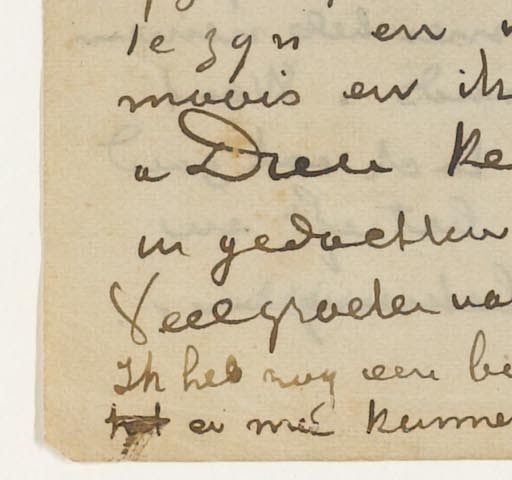 te zyn en
moois en ik
a Dieu ke
in gedachten
Veel groeten va
Ik heb nog een be
er mee kunne